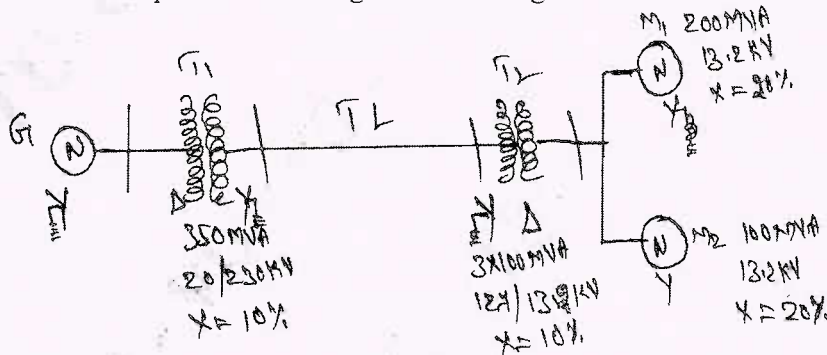 G
T1
Δ
350MVA
20/230KV
X = 10%
TL
T2
Δ
3X100MVA
X = 10%
M1 200MVA
13.2KV
X = 20%
Y
M2 100MVA
13.2KV
Y
X = 20%